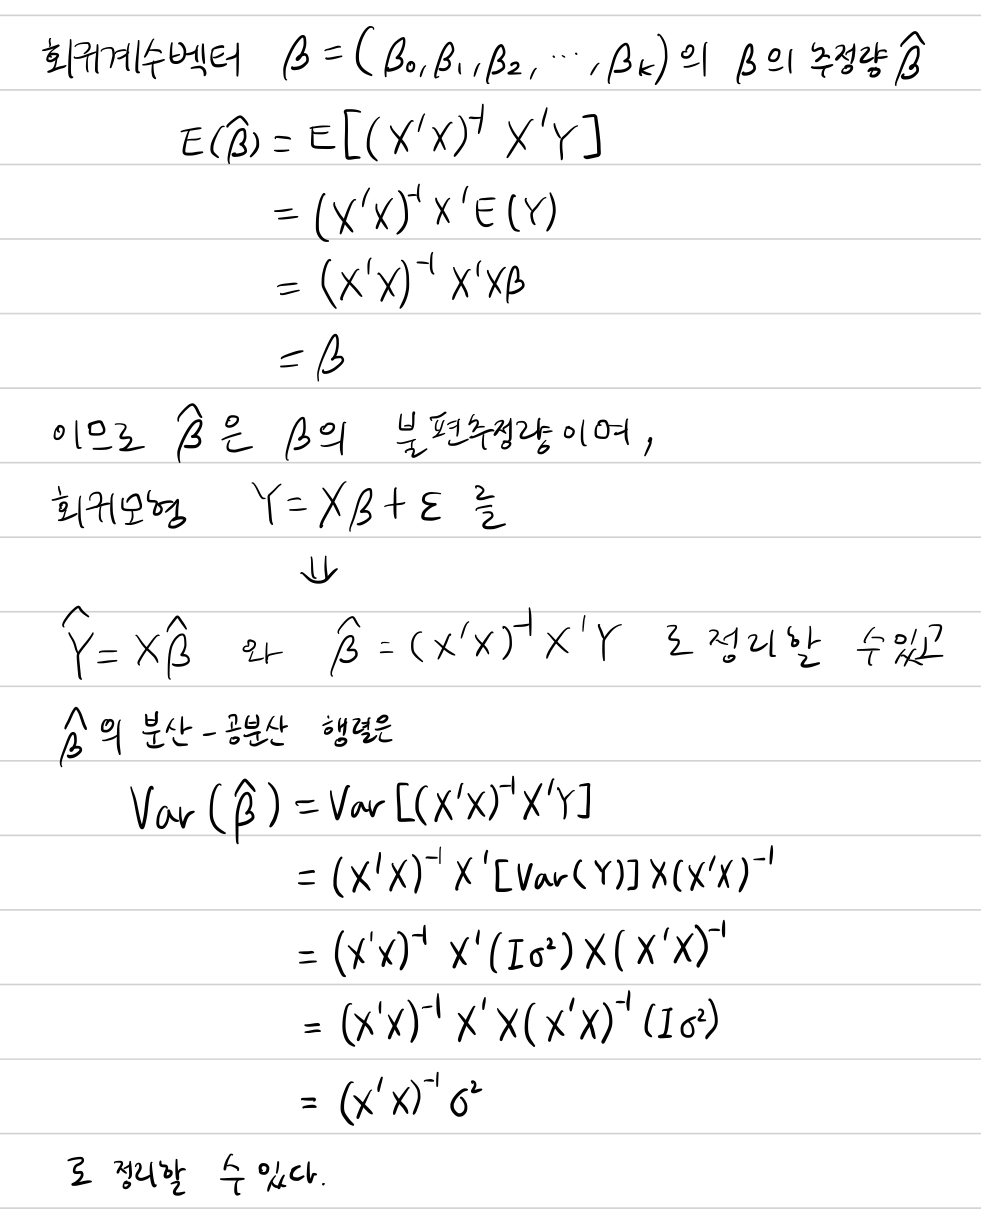 회귀계수벡터 β = (β₀, β₁, β₂, ⋯, βₖ)의 β의 추정량 β̂
E(β̂) = E[(X'X)⁻¹ X'Y]
= (X'X)⁻¹ X'E(Y)
= (X'X)⁻¹ X'Xβ
= β
이므로 β̂은 β의 불편추정량이며,
회귀모형 Y = Xβ + ε 를
⇓
Ŷ = Xβ̂ 와 β̂ = (X'X)⁻¹ X'Y 로 정리할 수 있고
β̂의 분산-공분산 행렬은
Var(β̂) = Var[(X'X)⁻¹X'Y]
= (X'X)⁻¹ X'[Var(Y)] X(X'X)⁻¹
= (X'X)⁻¹ X'(Iσ²) X(X'X)⁻¹
= (X'X)⁻¹ X'X(X'X)⁻¹ (Iσ²)
= (X'X)⁻¹ σ²
로 정리할 수 있다.